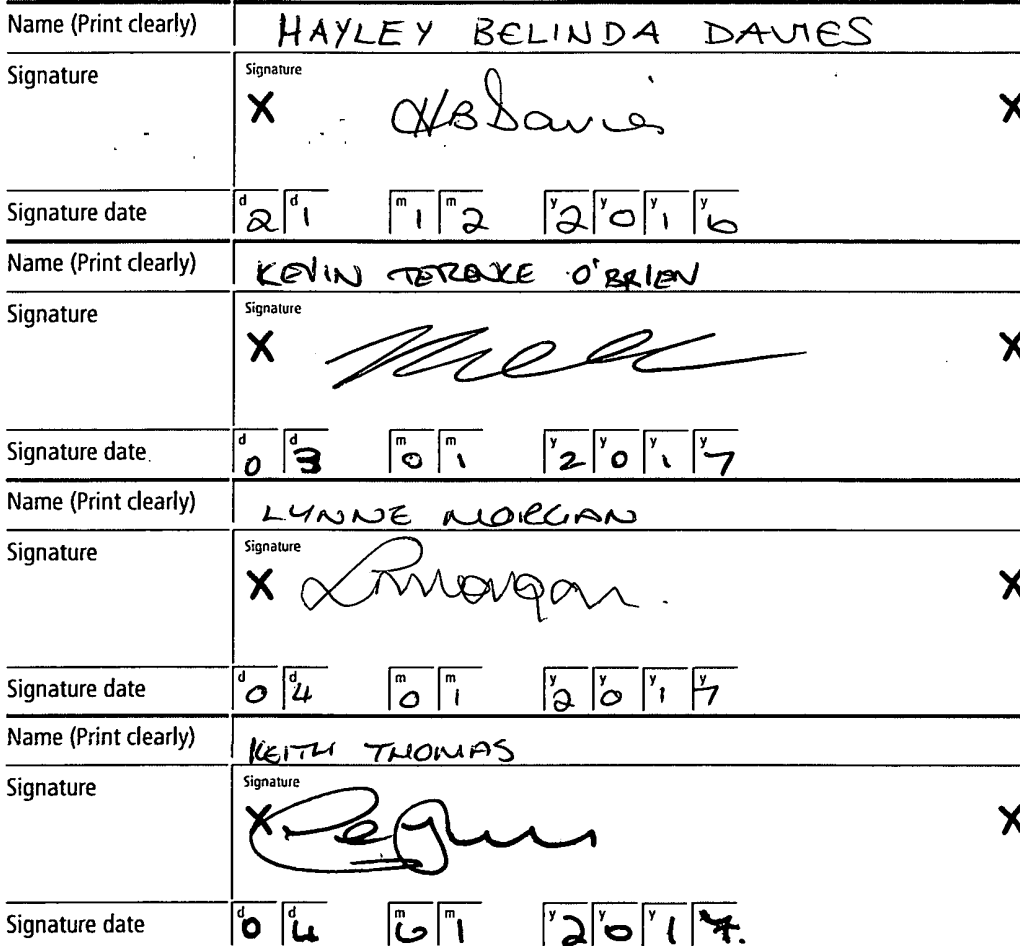 Name (Print clearly) HAYLEY BELINDA DAVIES
Signature Signature
X HB Davies X
Signature date d 2 d 1 m 1 m 2 y 2 y 0 y 1 y 6
Name (Print clearly) KEVIN TERENCE O'BRIEN
Signature Signature
X X
Signature date d 0 d 3 m 0 m 1 y 2 y 0 y 1 y 7
Name (Print clearly) LYNNE MORGAN
Signature Signature
X L Morgan X
Signature date d 0 d 4 m 0 m 1 y 2 y 0 y 1 y 7
Name (Print clearly) KEITH THOMAS
Signature Signature
X X
Signature date d 0 d 4 m 0 m 1 y 2 y 0 y 1 y 7.